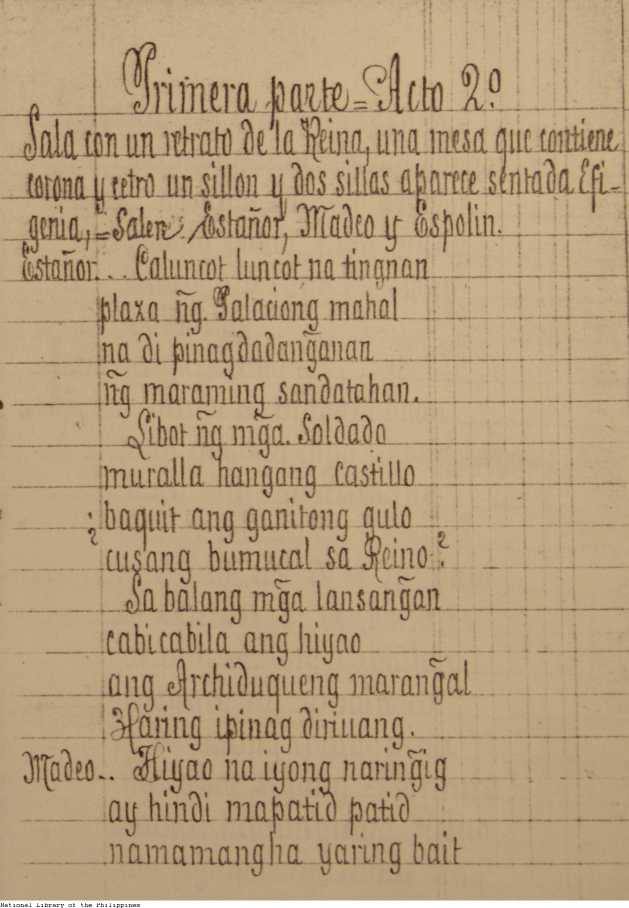 Primera parte=Acto 2.º
Sala con un retrato de la Reina, una mesa que contiene
corona y cetro un sillon y dos sillas aparece sentada Efi-
genia,=Salen Estañor, Madeo y Espolin.
Estañor... Caluncot luncot na tingnan
plaza ñg. Palaciong mahal
na di pinagdadang̃anan
ñg maraming sandatahan.
Libot ñg mg̃a. Soldado
muralla hangang castillo
¿baquit ang ganitong gulo
cusang bumucal sa Reino?
Sa balang mg̃a lansang̃an
cabicabila ang hiyao
ang Archiduqueng marang̃al
Haring ipinag diriuang.
Madeo.. Hiyao na iyong naring̃ig
ay hindi mapatid patid
namamangha yaring bait
National Library of the Philippines